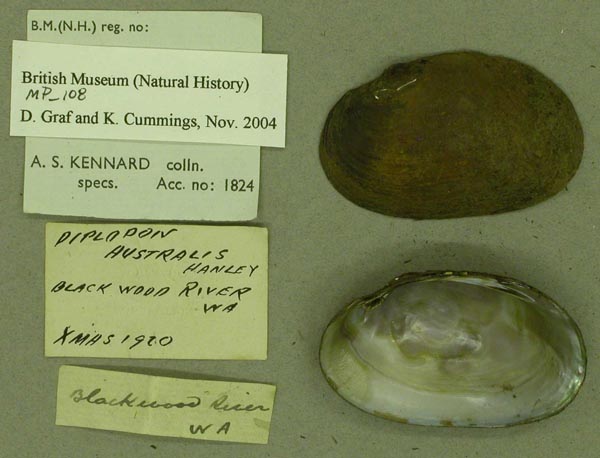 B.M.(N.H.) reg. no:
British Museum (Natural History)
MP_108
D. Graf and K. Cummings, Nov. 2004
A. S. KENNARD colln.
specs. Acc. no: 1824
DIPLODON
AUSTRALIS
HANLEY
BLACKWOOD RIVER
WA
XMAS 1920
Blackwood River
WA